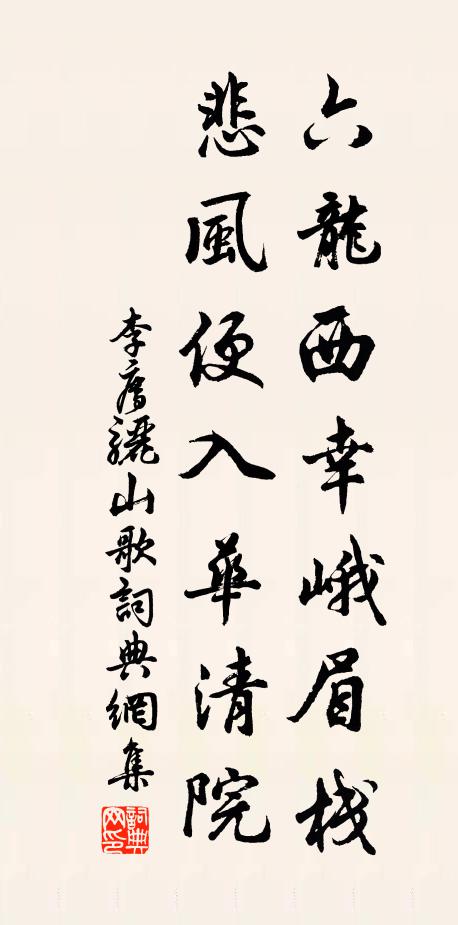 六龍西幸峨眉棧
悲風便入華清院
李廌驪山歌詞典網集
詞典網印